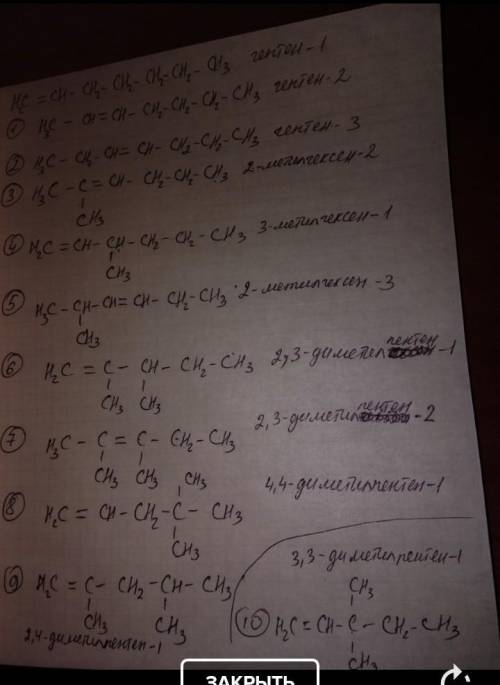 H₂C = CH – CH₂ – CH₂ – CH₂ – CH₂ – CH₃ гептен-1
① H₃C – CH = CH – CH₂ – CH₂ – CH₂ – CH₃ гептен-2
② H₃C – CH₂ – CH = CH – CH₂ – CH₂ – CH₃ гептен-3
③ H₃C – C = CH – CH₂ – CH₂ – CH₃ 2-метилгексен-2
CH₃
④ H₂C = CH – CH – CH₂ – CH₂ – CH₃ 3-метилгексен-1
CH₃
⑤ H₃C – CH – CH = CH – CH₂ – CH₃ 2-метилгексен-3
CH₃
⑥ H₂C = C – CH – CH₂ – CH₃ 2,3-диметилпентен-1
CH₃ CH₃
⑦ H₃C – C = C – CH₂ – CH₃ 2,3-диметилпентен-2
CH₃ CH₃
CH₃
⑧ H₂C = CH – CH₂ – C – CH₃ 4,4-диметилпентен-1
CH₃
⑨ H₂C = C – CH₂ – CH – CH₃
CH₃ CH₃
2,4-диметилпентен-1
3,3-диметилпентен-1
CH₃
⑩ H₂C = CH – C – CH₂ – CH₃
CH₃
ЗАКРЫТЬ